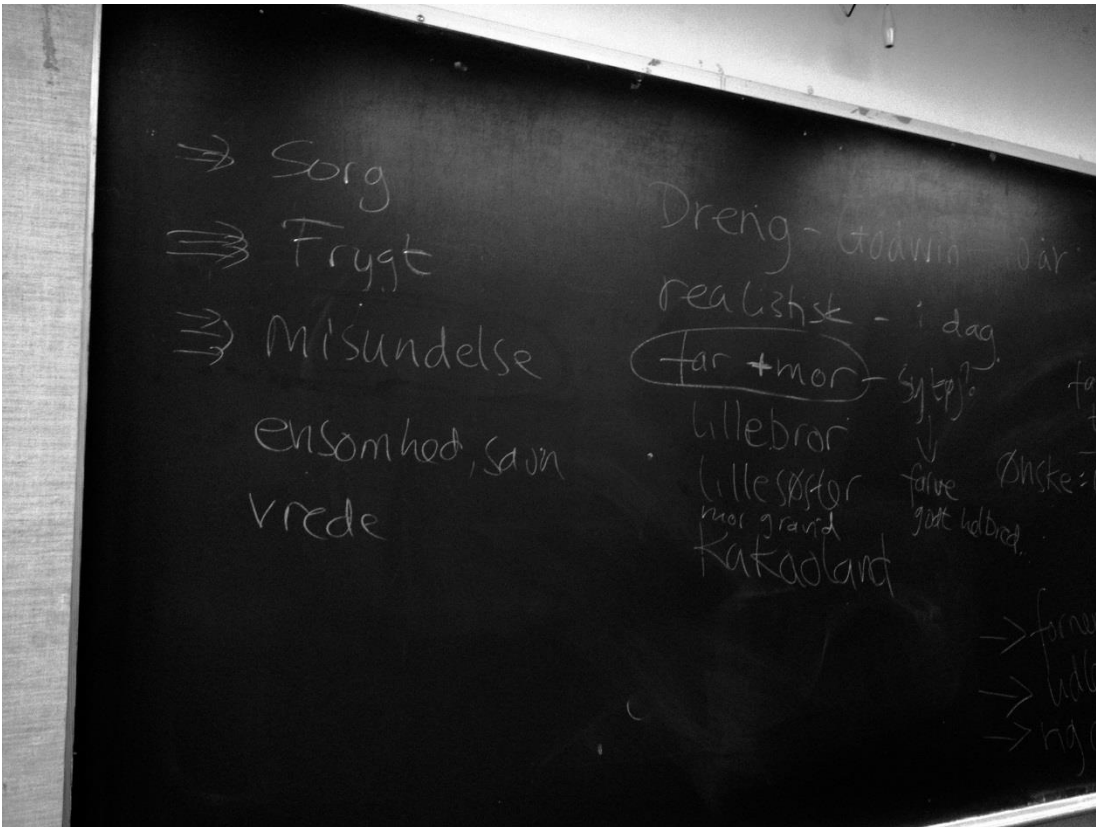 Sorg
Frygt
misundelse
ensomhed, savn
vrede
Dreng - Godwin år
realistisk - i dag
far + mor -
lillebror
lillesøster
mor gravid
Kakaoland
farve
godt helbred.
Ønske: